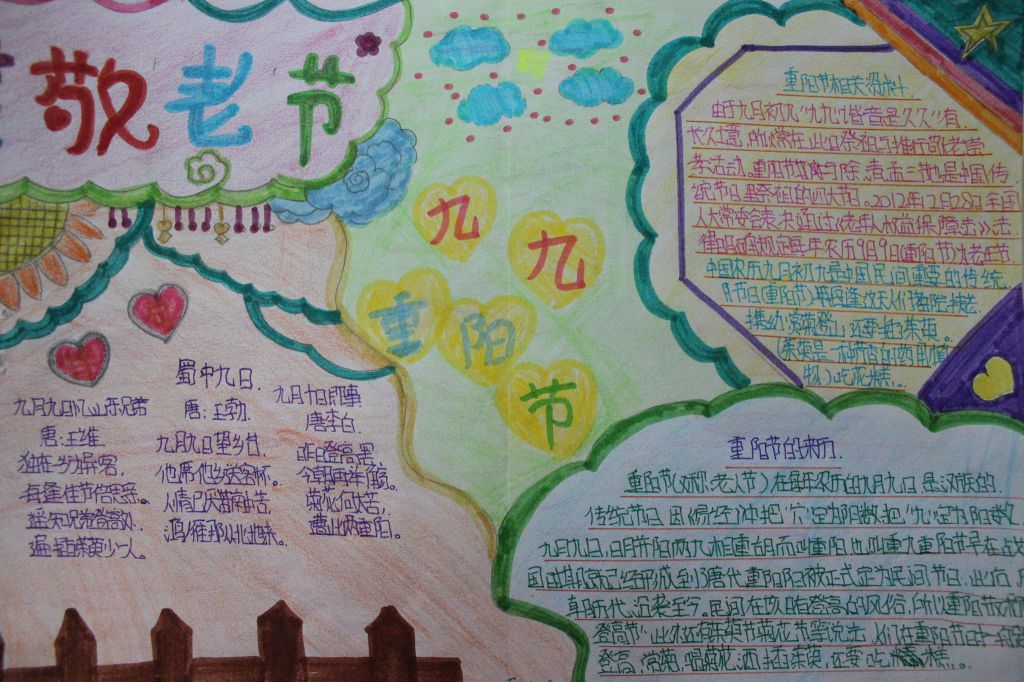 敬老节
九
九
重阳
节
蜀中九日.
唐:王勃.
九月九日望乡台,
他席他乡送客怀。
人情已厌南中苦,
鸿雁那从北地来。
九月九日忆山东兄弟
唐:王维
独在乡为异客,
每逢佳节倍思亲。
遥知兄弟登高处,
遍插茱萸少一人。
九月十日即事
唐李白.
昨日登高罢
今朝再举觞。
菊花何太苦,
遭此两重阳。
重阳节相关资料.
由于九月初九“九九”谐音是“久久”有
长久之意,所以常在此日祭祖与推行敬老
孝活动。重阳节 与除、清、盂三节也是中国传
统节日里祭祖的四大节。2012年12月28日全国
人大常委会表决通过《老年人权益保障法》法
律明确规定每年农历9月9日(重阳节)为老年节
中国农历九月初九是中国民间重要的传统
节日(重阳节)
携幼 赏菊登山,还要插茱萸。
(茱萸是一种芳香的药用植
物)吃花糕,。
重阳节的来历.
重阳节(又称:老人节)在每年农历的九月九日是汉族的
传统节日,因《易经》中把“六”定为阴数把“九”定为阳数,
九月九日,日月并阳两九相重 而叫重阳,也叫重九重阳节早在战
国时期就已经形成,到了唐代重阳 被正式定为民间节日,此后
朝历代沿袭至今。民间在该日有登高的风俗,所以重阳节又
登高节”此外还有茱萸节菊花节等说法,人们在重阳节日
登高,赏菊,喝菊花酒,插茱萸,还要吃 糕,。